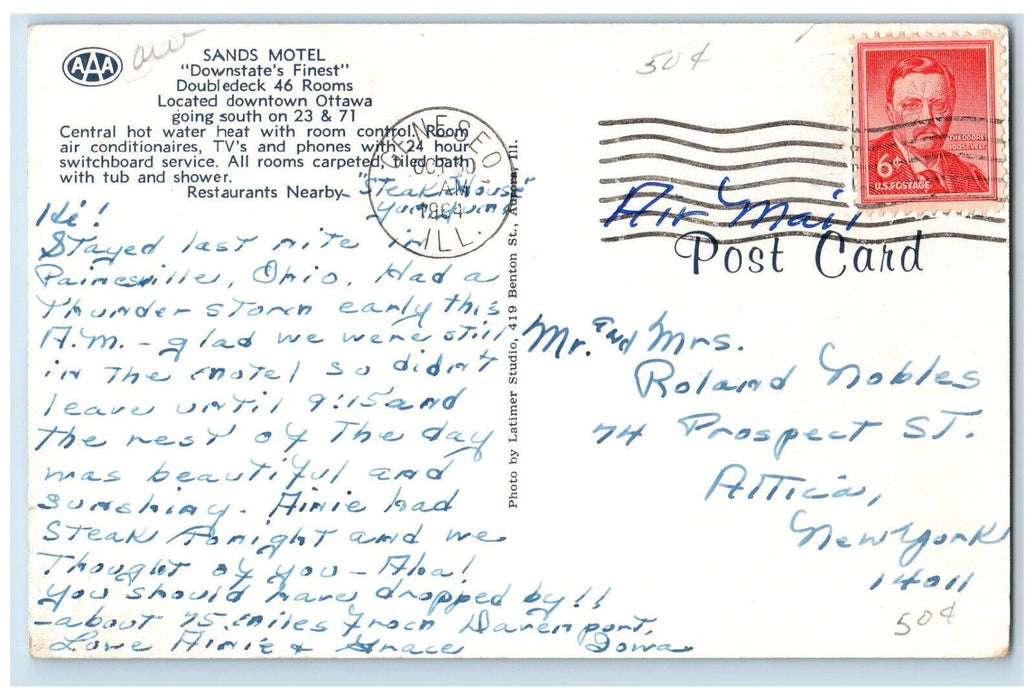 AAA
SANDS MOTEL
"Downstate's Finest"
Doubledeck 46 Rooms
Located downtown Ottawa
going south on 23 & 71
Central hot water heat with room control. Room
air conditionaires, TV's and phones with 24 hour
switchboard service. All rooms carpeted, tiled bath
with tub and shower.
Restaurants Nearby "Steak House"
Yum Yum
Hi!
Stayed last nite in
Painesville, Ohio. Had a
Thunder storm early this
A.M. - glad we were still
in the motel so didn't
leave until 9:15 and
the rest of the day
was beautiful and
sunshiny. Ainie had
steak tonight and we
thought of you - Aha!
you should have dropped by!!
- about 75 miles from Davenport,
Iowa
Love Ainie & Grace
Photo by Latimer Studio, 419 Benton St., Aurora, Ill.
GENESEO,
OCT 10
AM
1964
ILL.
50¢
THEODORE
ROOSEVELT
6¢
U.S. POSTAGE
Air Mail
Post Card
Mr. and Mrs.
Roland Nobles
74 Prospect St.
Attica,
New York
14011
50¢